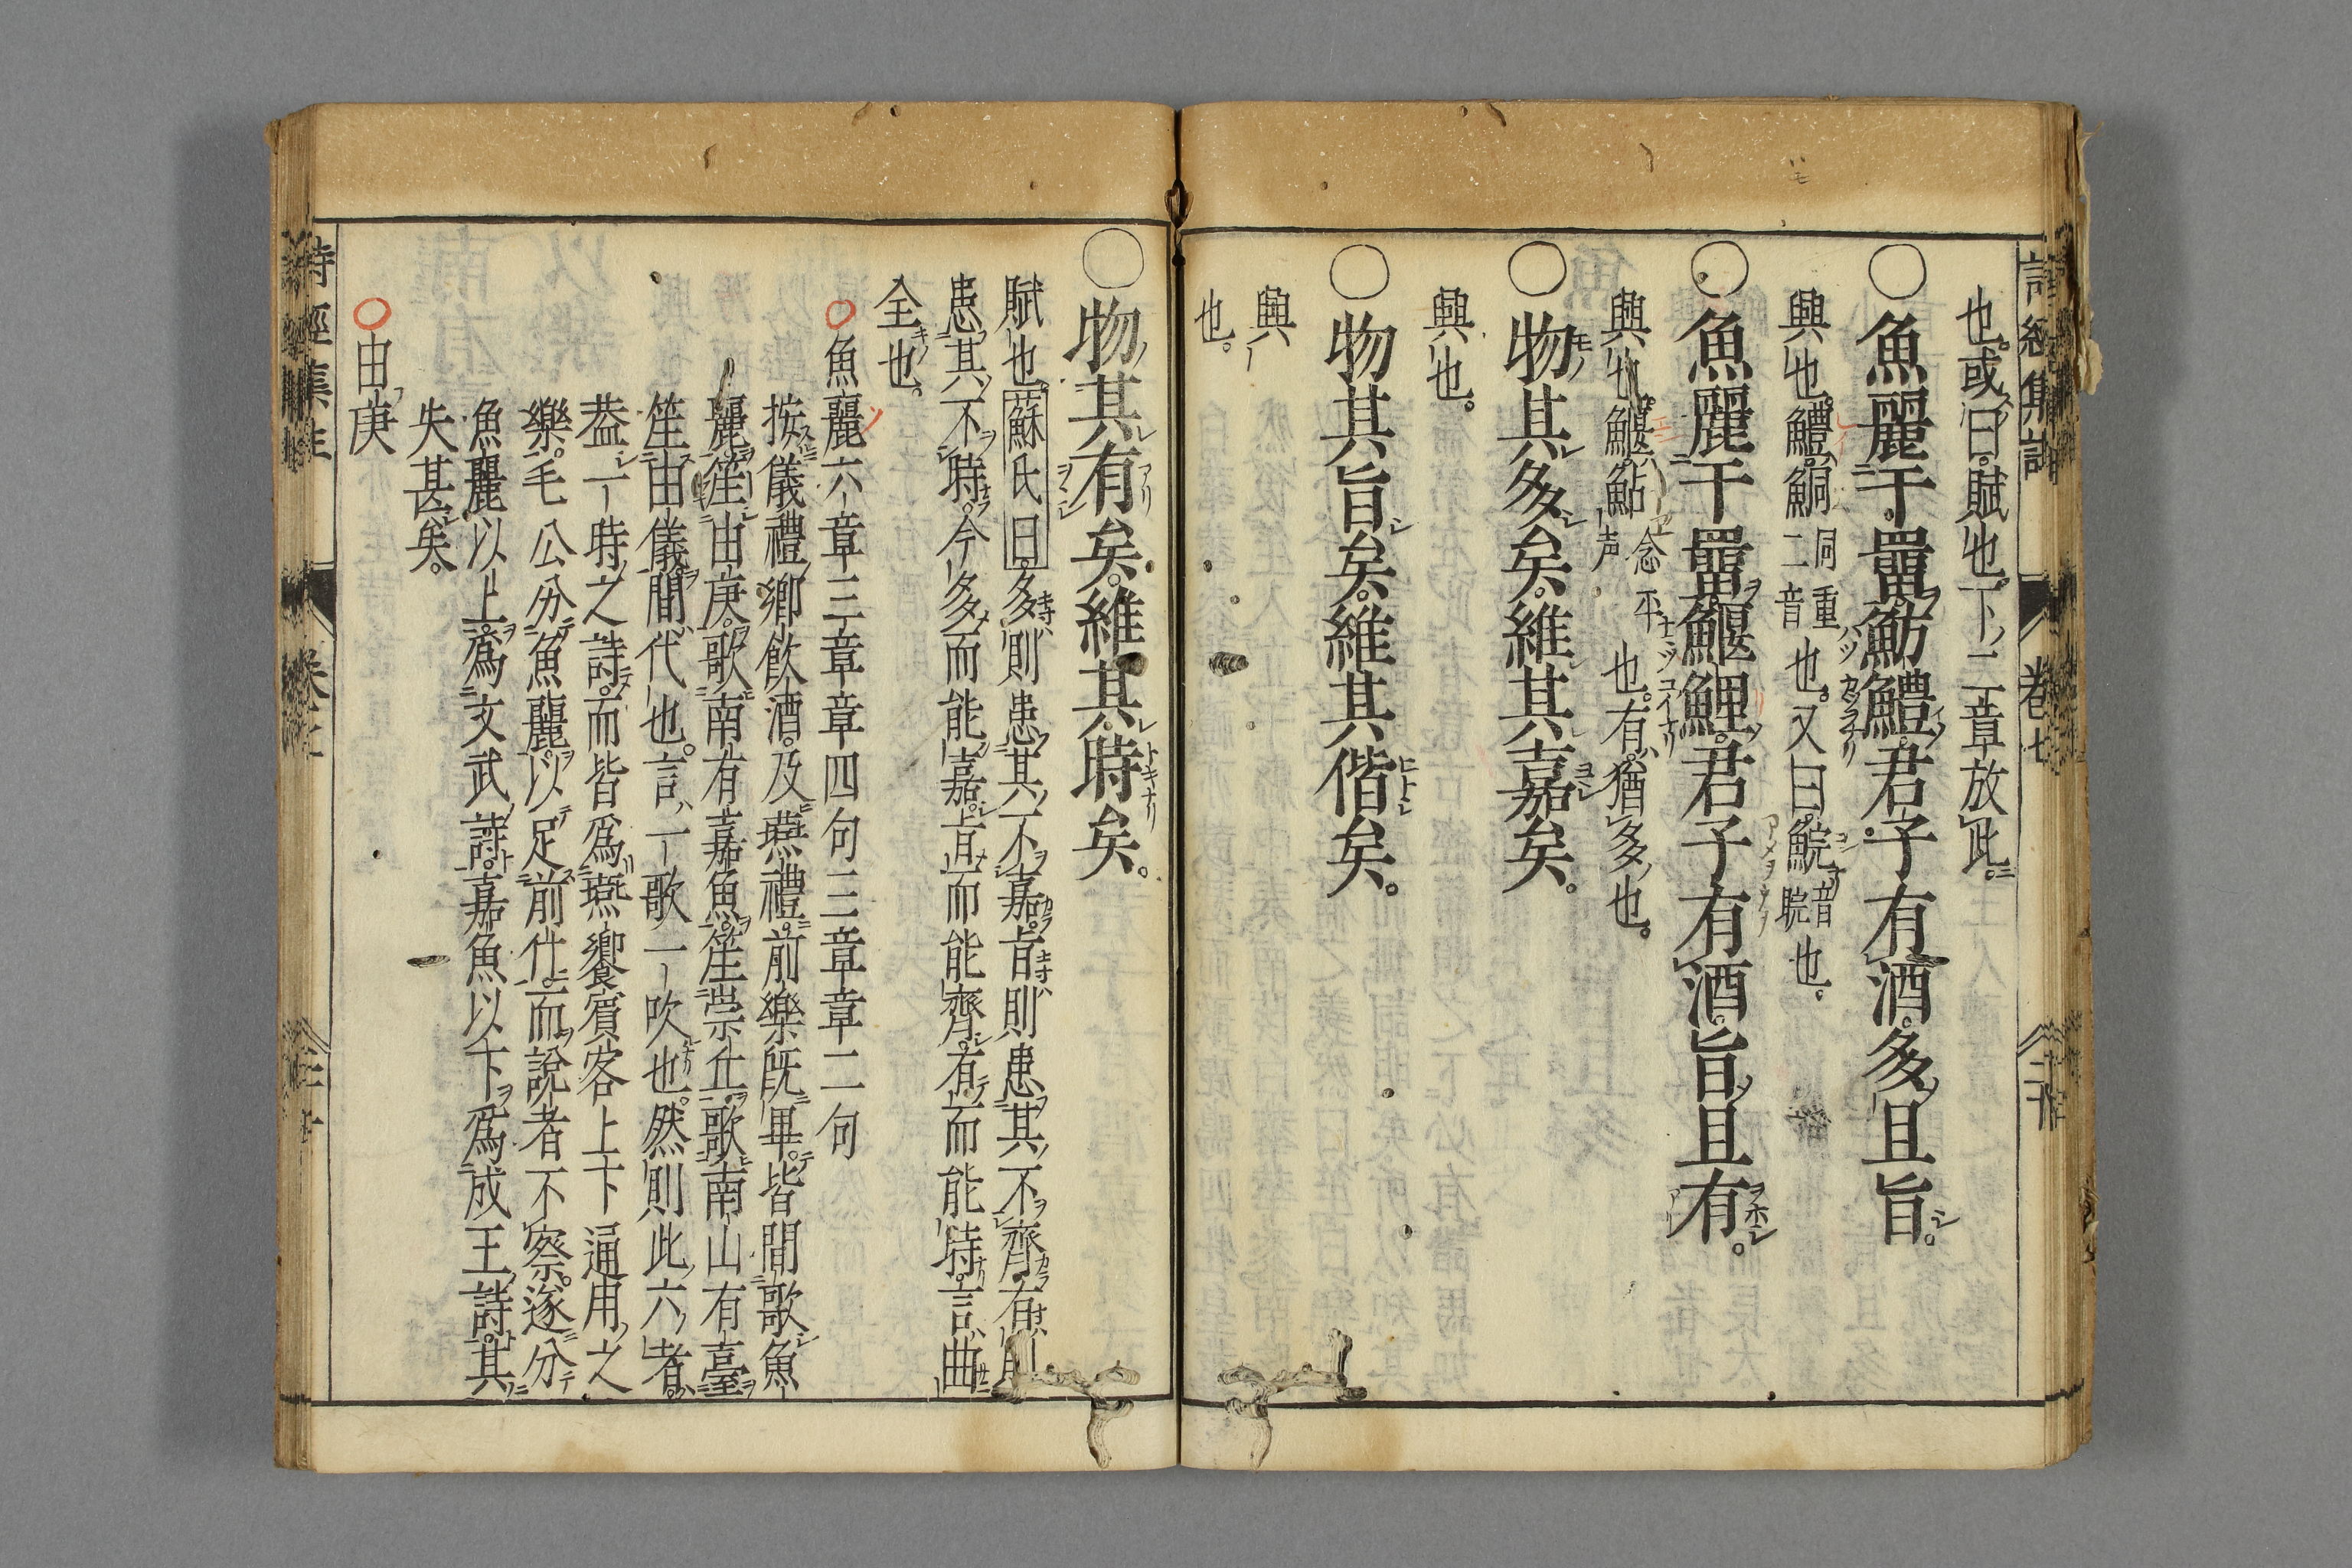 也。或曰。賦也。下二章放此。
○魚麗于罶。魴鱧。君子有酒。多且旨。
興也。鱧鮦同重二音也。又曰。鯇音睆也。
○魚麗于罶。鰋鯉。君子有酒。旨且有。
興也。鰋鮎念平声也。有。猶多也。
○物其多矣。維其嘉矣。
興也。
○物其旨矣。維其偕矣。
興
也。
○物其有矣。維其時矣。
賦也。蘇氏曰。多則患其不嘉。旨則患其不齊。有則
患其不時。今多而能嘉。旨而能齊。有而能時。言曲
全也。
○魚麗六章三章章四句三章章二句
按儀禮鄉飲酒。及燕禮。前樂既畢。皆間歌魚
麗。笙由庚。歌南有嘉魚。笙崇丘。歌南山有臺。
笙由儀。間代也。言一歌一吹也。然則此六者。
蓋一時之詩。而皆爲燕饗賓客上下通用之
樂。毛公分魚麗。以足前什。而說者不察。遂分
魚麗以上。爲文武詩。嘉魚以下。爲成王詩。其
失甚矣。
○由庚